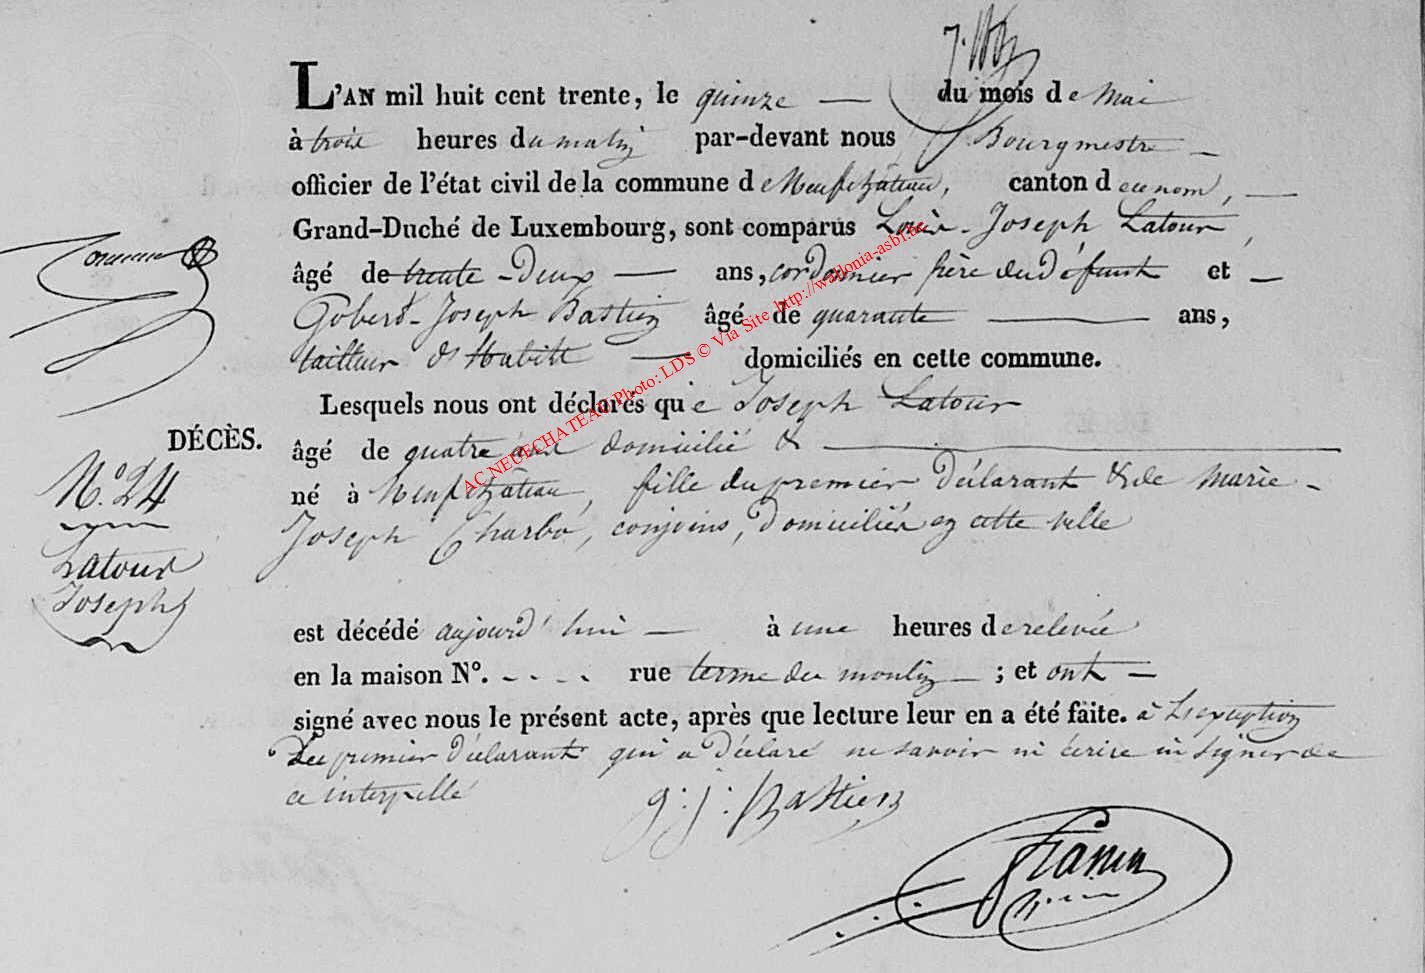 L'AN mil huit cent trente, le quinze — du mois de Mai
à trois heures du matin par-devant nous Bourgmestre —
officier de l'état civil de la commune de Neufchâteau, canton du nom, —
Grand-Duché de Luxembourg, sont comparus Louis-Joseph Latour,
âgé de trente-Deux — ans, cordonnier père du défunt et —
Gobert-Joseph Bastien âgé de quarante — ans,
tailleur d'habits — domiciliés en cette commune.
Lesquels nous ont déclarés que Joseph Latour
DÉCÈS.
âgé de quatre ans domicilié & —
N.° 24
né à Neufchâteau, fille du premier Déclarant & de Marie-
Joseph Charbo, conjoins, Domiciliés en cette ville
Latour
Joseph
est décédé aujourd'hui — à une heures de relevée
en la maison N°. - - - - rue terme du moulin — ; et ont —
signé avec nous le présent acte, après que lecture leur en a été faite. à L'exception
Du premier Déclarant qui a Déclaré ne savoir ni écrire ni signer de
ce interpellé
g: j: Bastien
AC NEUECHATEAU Photo: LDS © Via Site http://wallonia-asbl.be